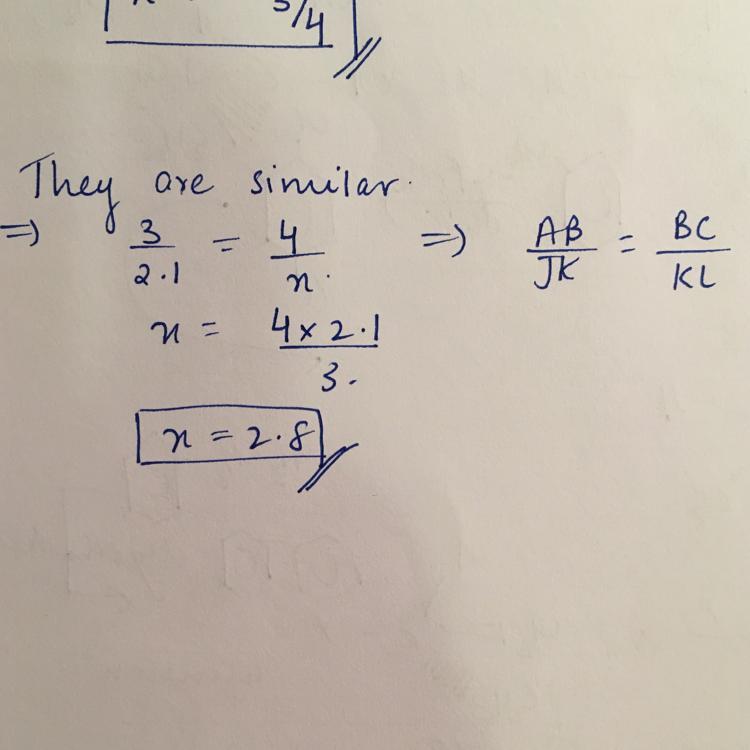 3/4
They are similar.
=> 3/2.1 = 4/x. => AB/JK = BC/KL
x = 4 x 2.1/3.
x = 2.8